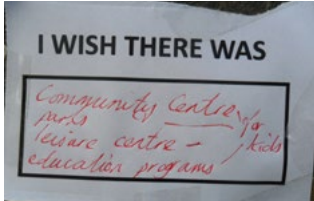 I WISH THERE WAS
Community Centre for
parks kids
leisure centre -
education programs